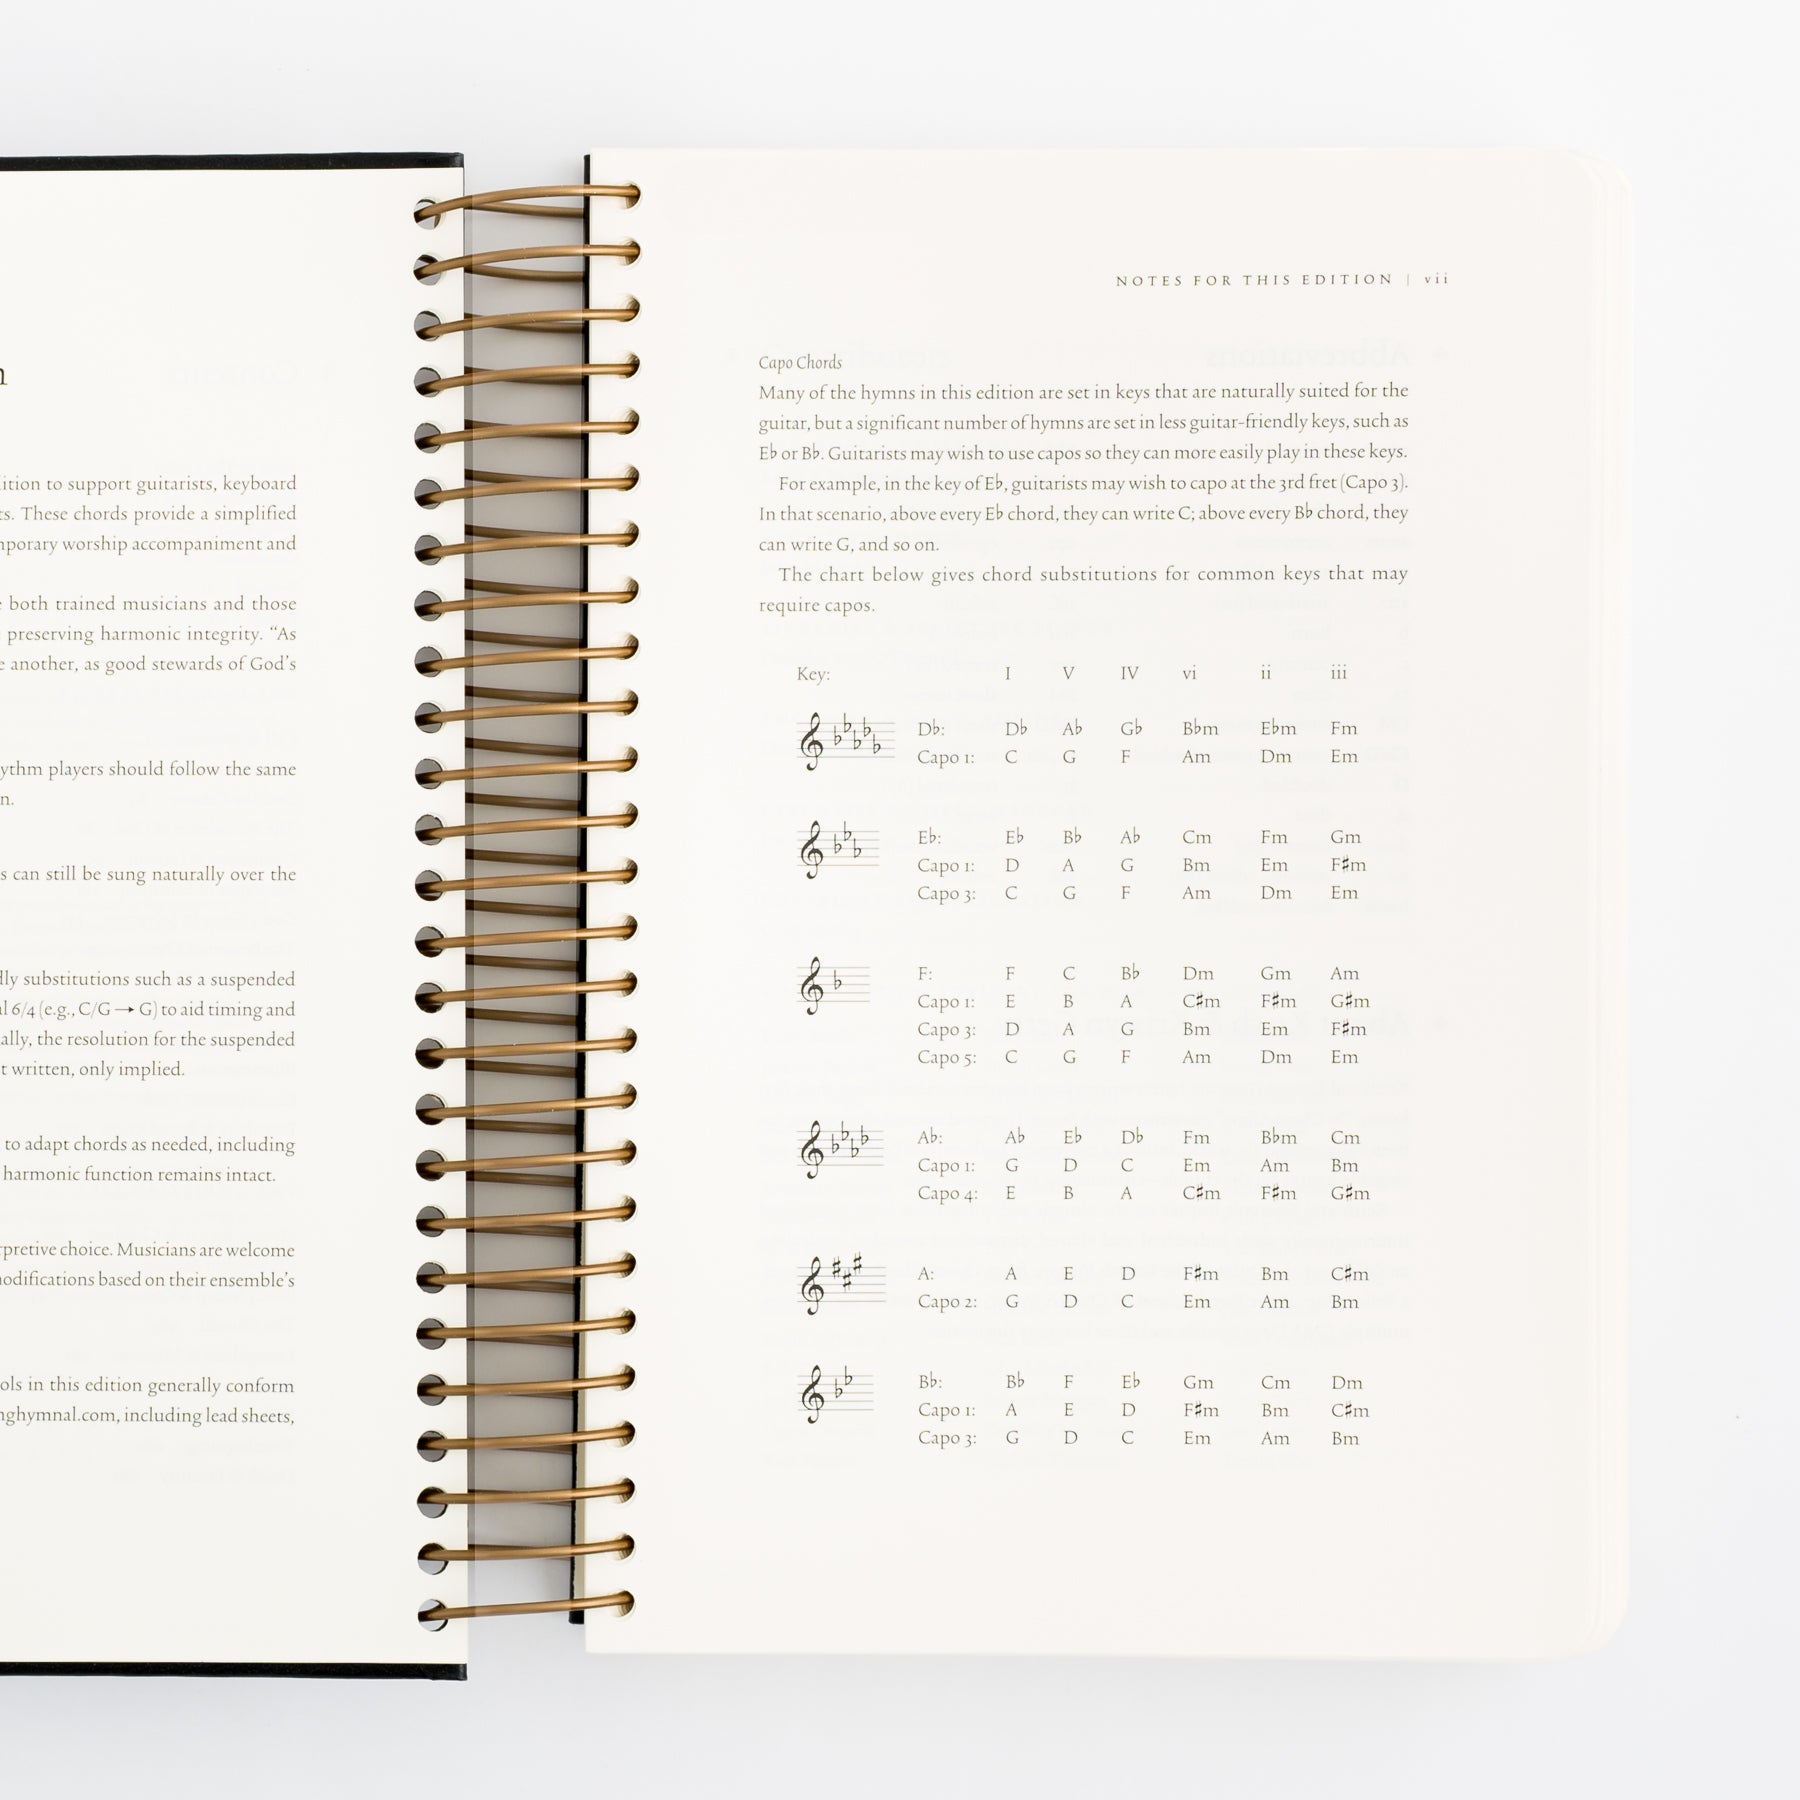 n
ition to support guitarists, keyboard
ts. These chords provide a simplified
mporary worship accompaniment and
e both trained musicians and those
preserving harmonic integrity. “As
e another, as good stewards of God’s
ythm players should follow the same
n.
s can still be sung naturally over the
dly substitutions such as a suspended
al 6/4 (e.g., C/G → G) to aid timing and
ally, the resolution for the suspended
t written, only implied.
to adapt chords as needed, including
harmonic function remains intact.
rpretive choice. Musicians are welcome
nodifications based on their ensemble’s
ols in this edition generally conform
nghymnal.com, including lead sheets,
NOTES FOR THIS EDITION | vii
Capo Chords
Many of the hymns in this edition are set in keys that are naturally suited for the
guitar, but a significant number of hymns are set in less guitar-friendly keys, such as
E♭ or B♭. Guitarists may wish to use capos so they can more easily play in these keys.
For example, in the key of E♭, guitarists may wish to capo at the 3rd fret (Capo 3).
In that scenario, above every E♭ chord, they can write C; above every B♭ chord, they
can write G, and so on.
The chart below gives chord substitutions for common keys that may
require capos.
Key: I V IV vi ii iii
D♭: D♭ A♭ G♭ B♭m E♭m Fm
Capo 1: C G F Am Dm Em
E♭: E♭ B♭ A♭ Cm Fm Gm
Capo 1: D A G Bm Em F♯m
Capo 3: C G F Am Dm Em
F: F C B♭ Dm Gm Am
Capo 1: E B A C♯m F♯m G♯m
Capo 3: D A G Bm Em F♯m
Capo 5: C G F Am Dm Em
A♭: A♭ E♭ D♭ Fm B♭m Cm
Capo 1: G D C Em Am Bm
Capo 4: E B A C♯m F♯m G♯m
A: A E D F♯m Bm C♯m
Capo 2: G D C Em Am Bm
B♭: B♭ F E♭ Gm Cm Dm
Capo 1: A E D F♯m Bm C♯m
Capo 3: G D C Em Am Bm